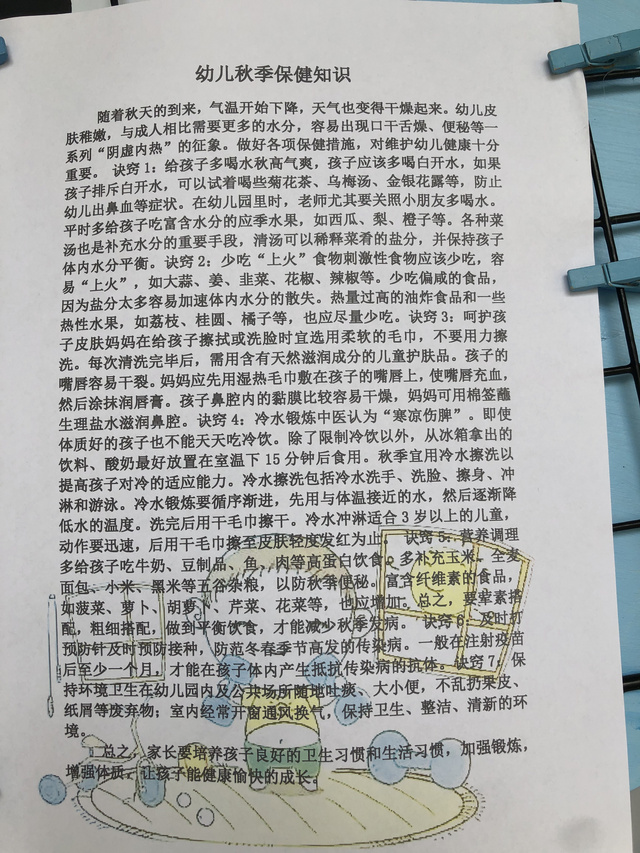 幼儿秋季保健知识
随着秋天的到来，气温开始下降，天气也变得干燥起来。幼儿皮
肤稚嫩，与成人相比需要更多的水分，容易出现口干舌燥、便秘等一
系列“阴虚内热”的征象。做好各项保健措施，对维护幼儿健康十分
重要。 诀窍 1：给孩子多喝水秋高气爽，孩子应该多喝白开水，如果
孩子排斥白开水，可以试着喝些菊花茶、乌梅汤、金银花露等，防止
幼儿出鼻血等症状。在幼儿园里时，老师尤其要关照小朋友多喝水。
平时多给孩子吃富含水分的应季水果，如西瓜、梨、橙子等。各种菜
汤也是补充水分的重要手段，清汤可以稀释菜肴的盐分，并保持孩子
体内水分平衡。诀窍 2：少吃“上火”食物刺激性食物应该少吃，容
易“上火”，如大蒜、姜、韭菜、花椒、辣椒等。少吃偏咸的食品，
因为盐分太多容易加速体内水分的散失。热量过高的油炸食品和一些
热性水果，如荔枝、桂圆、橘子等，也应尽量少吃。诀窍 3：呵护孩
子皮肤妈妈在给孩子擦拭或洗脸时宜选用柔软的毛巾，不要用力擦
洗。每次清洗完毕后，需用含有天然滋润成分的儿童护肤品。孩子的
嘴唇容易干裂。妈妈应先用湿热毛巾敷在孩子的嘴唇上，使嘴唇充血，
然后涂抹润唇膏。孩子鼻腔内的黏膜比较容易干燥，妈妈可用棉签蘸
生理盐水滋润鼻腔。诀窍 4：冷水锻炼中医认为“寒凉伤脾”。即使
体质好的孩子也不能天天吃冷饮。除了限制冷饮以外，从冰箱拿出的
饮料、酸奶最好放置在室温下 15 分钟后食用。秋季宜用冷水擦洗以
提高孩子对冷的适应能力。冷水擦洗包括冷水洗手、洗脸、擦身、冲
淋和游泳。冷水锻炼要循序渐进，先用与体温接近的水，然后逐渐降
低水的温度。洗完后用干毛巾擦干。冷水冲淋适合 3 岁以上的儿童，
动作要迅速，后用干毛巾擦至皮肤轻度发红为止。 诀窍 5：营养调理
多给孩子吃牛奶、豆制品、鱼、肉等高蛋白饮食。多补充玉米、全麦
面包、小米、黑米等五谷杂粮，以防秋季便秘。富含纤维素的食品，
如菠菜、萝卜、胡萝卜、芹菜、花菜等，也应增加。总之，要荤素搭
配，粗细搭配，做到平衡饮食，才能减少秋季发病。 诀窍 6：及时打
预防针及时预防接种，防范冬春季节高发的传染病。一般在注射疫苗
后至少一个月，才能在孩子体内产生抵抗传染病的抗体。诀窍 7：保
持环境卫生在幼儿园内及公共场所随地吐痰、大小便，不乱扔果皮、
纸屑等废弃物；室内经常开窗通风换气，保持卫生、整洁、清新的环
境。
总之，家长要培养孩子良好的卫生习惯和生活习惯，加强锻炼，
增强体质，让孩子能健康愉快的成长。